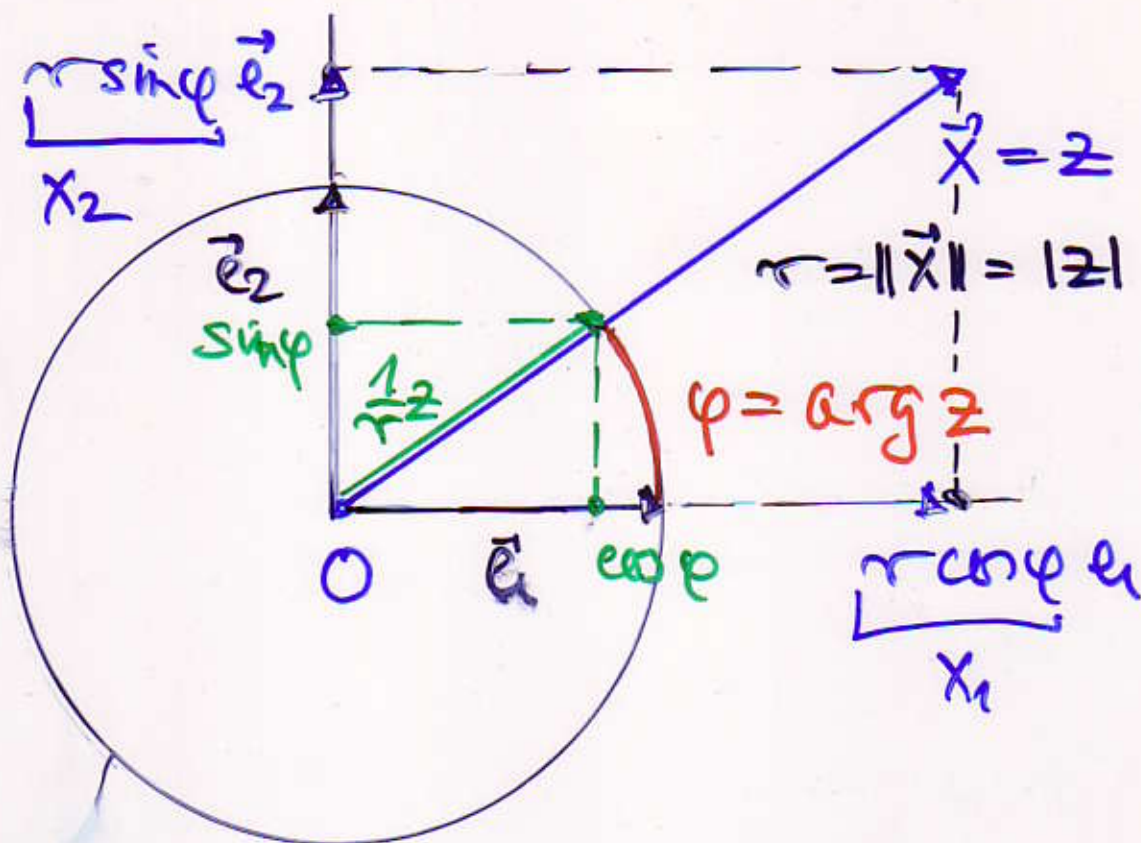 r sinφ e⃗₂
x₂
x⃗ = z
e⃗₂
r = ||x⃗|| = |z|
sinφ
1/r z
φ = arg z
O
e⃗₁
cosφ
r cosφ e₁
x₁